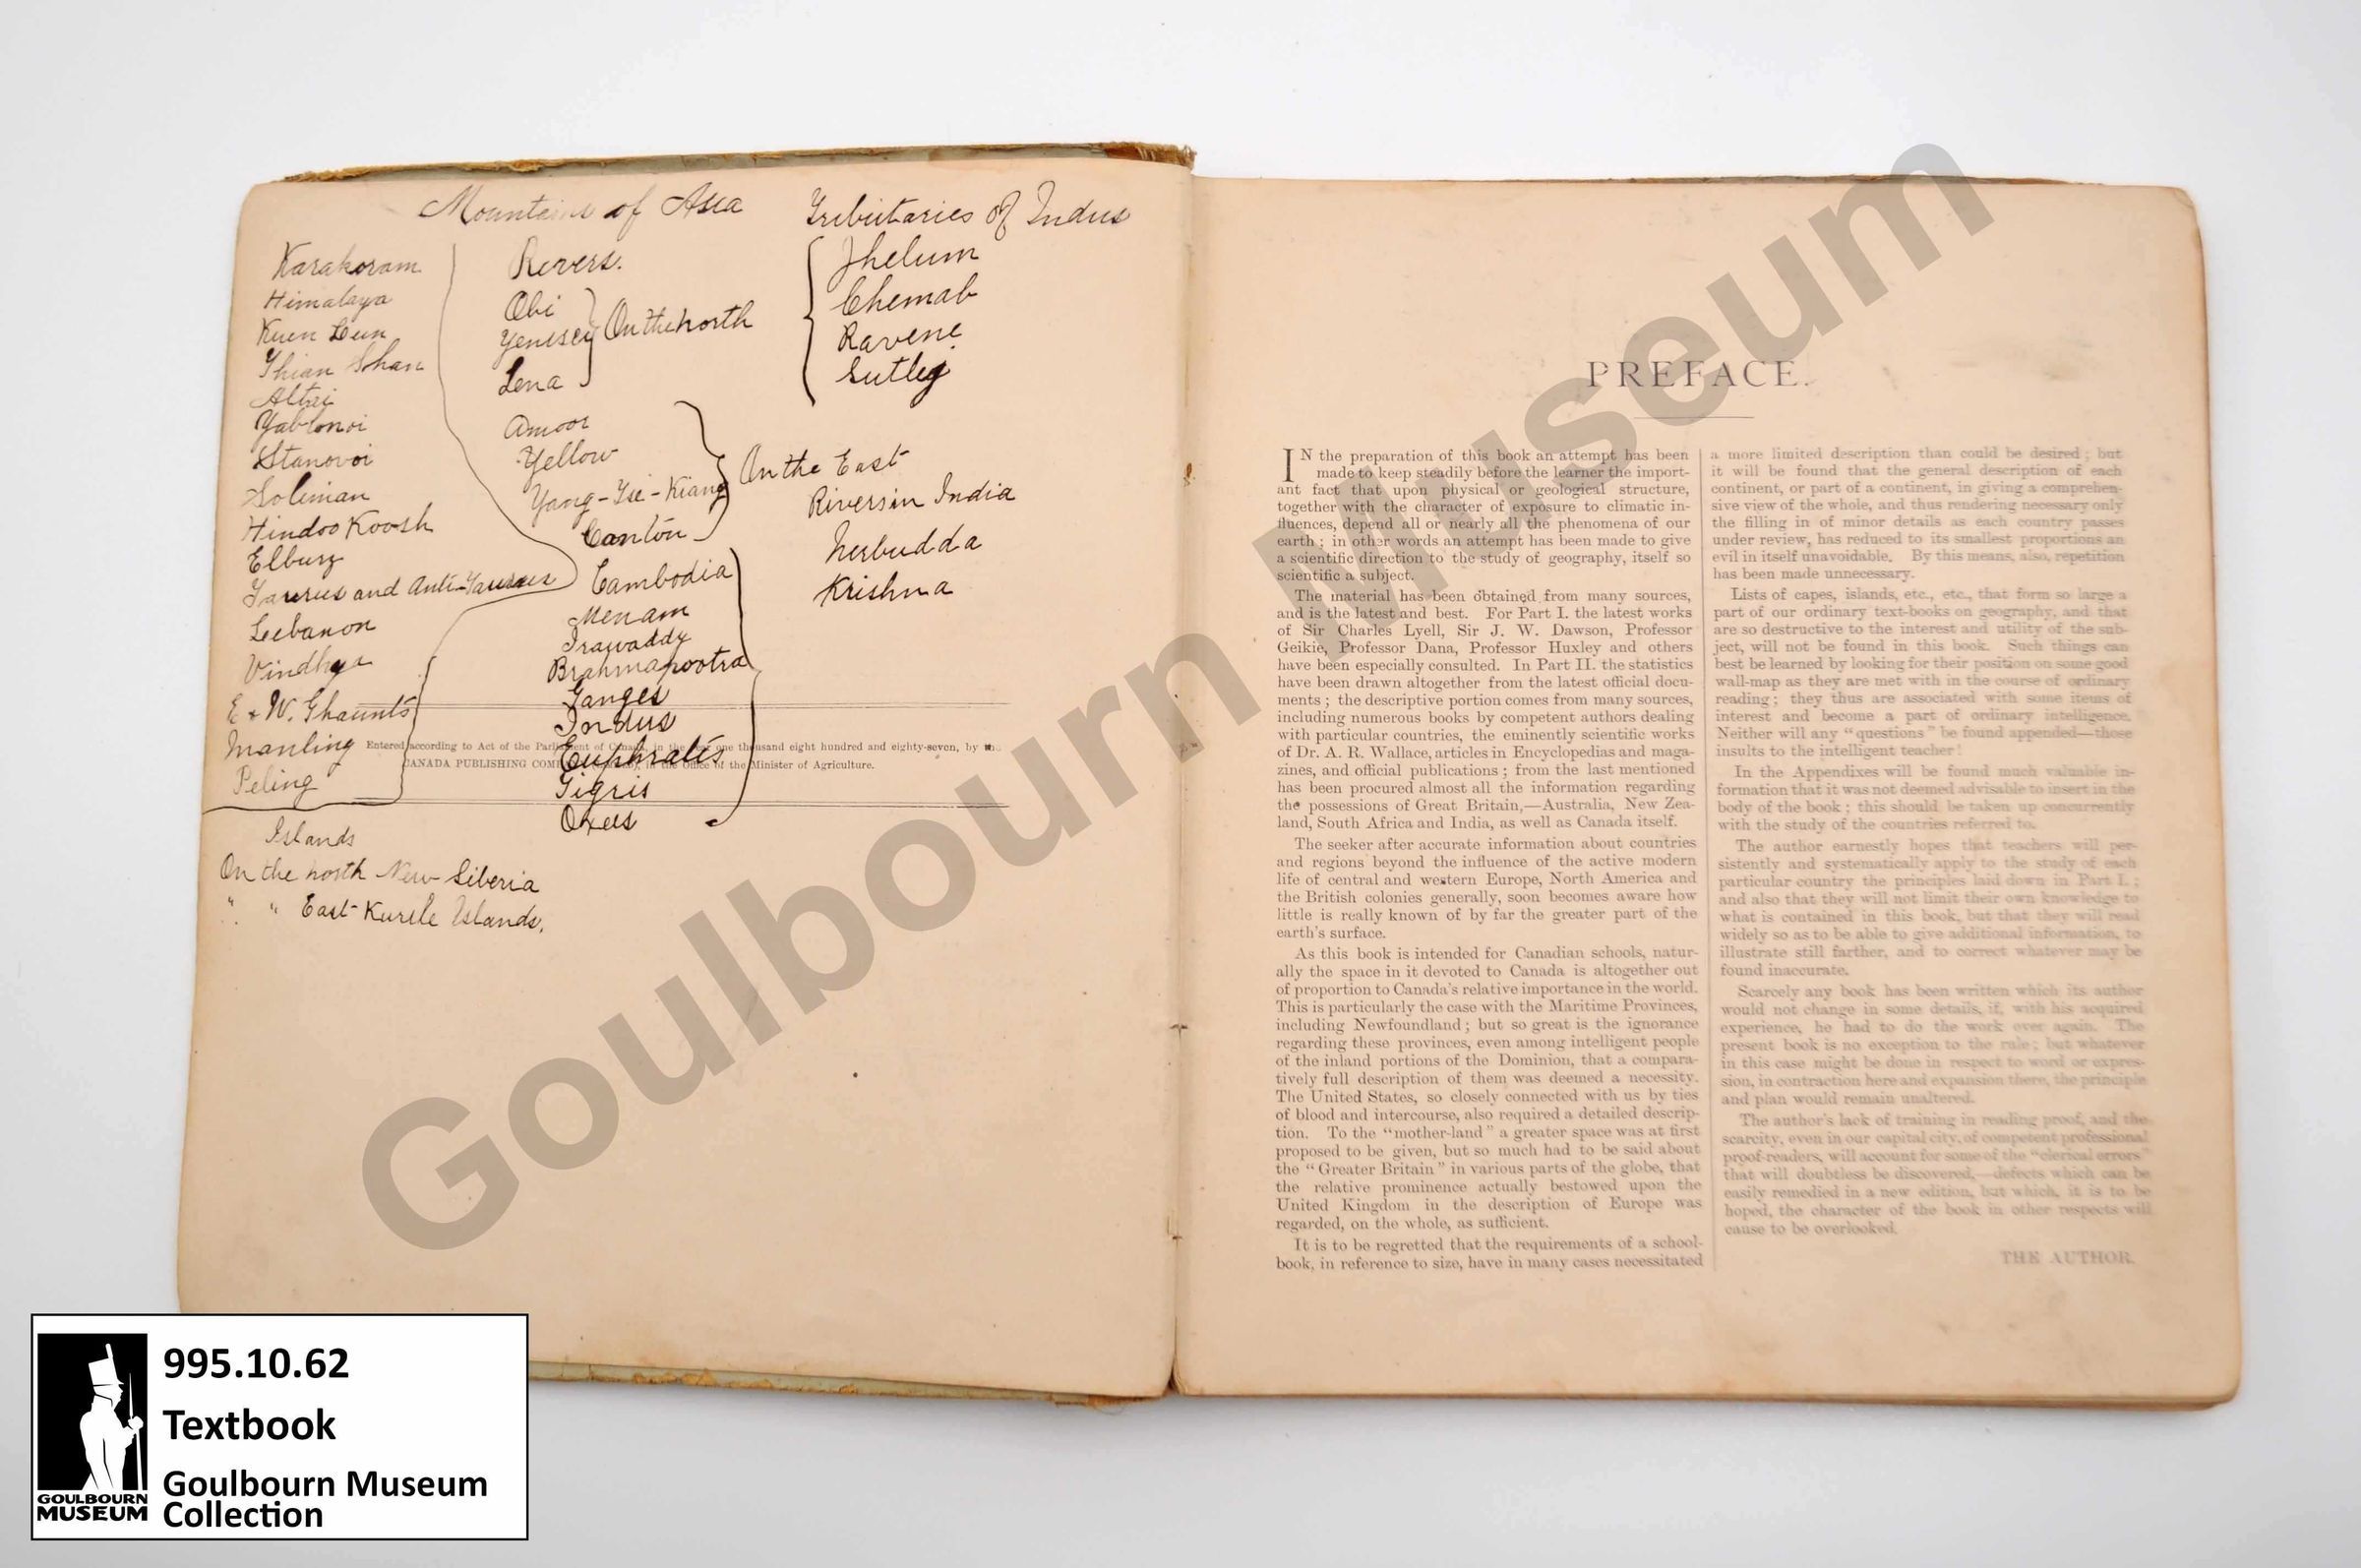 Mountains of Asia
Karakoram
Himalaya
Kuen Luen
Thian Shan
Altai
Yablonoi
Stanovoi
Soliman
Hindoo Koosh
Elburz
Taurus and Anti-Taurus
Lebanon
Vindhya
E & W. Ghaunts
Manling
Peling
Islands
On the north New Siberia
" " East Kurile Islands.
Rivers.
Obi
Yenisey
Lena
On the north
Amoor
Yellow
Yang-Tse-Kiang
Canton
On the East
Cambodia
Menam
Irawaddy
Brahmapootra
Ganges
Indus
Euphrates
Tigris
Oxus
Tributaries of Indus
Jhelum
Chemab
Ravene
Sutlej
Rivers in India
Nerbudda
Krishna
Entered according to Act of the Parliament of Canada, in the year one thousand eight hundred and eighty-seven, by
CANADA PUBLISHING in the Office of the Minister of Agriculture.
PREFACE.
IN the preparation of this book an attempt has been
made to keep steadily before the learner the import-
ant fact that upon physical or geological structure,
together with the character of exposure to climatic in-
fluences, depend all or nearly all the phenomena of our
earth; in other words an attempt has been made to give
a scientific direction to the study of geography, itself so
scientific a subject.
The material has been obtained from many sources,
and is the latest and best. For Part I. the latest works
of Sir Charles Lyell, Sir J. W. Dawson, Professor
Geikie, Professor Dana, Professor Huxley and others
have been especially consulted. In Part II. the statistics
have been drawn altogether from the latest official docu-
ments; the descriptive portion comes from many sources,
including numerous books by competent authors dealing
with particular countries, the eminently scientific works
of Dr. A. R. Wallace, articles in Encyclopedias and maga-
zines, and official publications; from the last mentioned
has been procured almost all the information regarding
the possessions of Great Britain,—Australia, New Zea-
land, South Africa and India, as well as Canada itself.
The seeker after accurate information about countries
and regions beyond the influence of the active modern
life of central and western Europe, North America and
the British colonies generally, soon becomes aware how
little is really known of by far the greater part of the
earth's surface.
As this book is intended for Canadian schools, natur-
ally the space in it devoted to Canada is altogether out
of proportion to Canada's relative importance in the world.
This is particularly the case with the Maritime Provinces,
including Newfoundland; but so great is the ignorance
regarding these provinces, even among intelligent people
of the inland portions of the Dominion, that a compara-
tively full description of them was deemed a necessity.
The United States, so closely connected with us by ties
of blood and intercourse, also required a detailed descrip-
tion. To the "mother-land" a greater space was at first
proposed to be given, but so much had to be said about
the "Greater Britain" in various parts of the globe, that
the relative prominence actually bestowed upon the
United Kingdom in the description of Europe was
regarded, on the whole, as sufficient.
It is to be regretted that the requirements of a school-
book, in reference to size, have in many cases necessitated
a more limited description than could be desired; but
it will be found that the general description of each
continent, or part of a continent, in giving a comprehen-
sive view of the whole, and thus rendering necessary only
the filling in of minor details as each country passes
under review, has reduced to its smallest proportions an
evil in itself unavoidable. By this means, also, repetition
has been made unnecessary.
Lists of capes, islands, etc., etc., that form so large a
part of our ordinary text-books on geography, and that
are so destructive to the interest and utility of the sub-
ject, will not be found in this book. Such things can
best be learned by looking for their position on some good
wall-map as they are met with in the course of ordinary
reading; they thus are associated with some items of
interest and become a part of ordinary intelligence.
Neither will any "questions" be found appended—those
insults to the intelligent teacher!
In the Appendixes will be found much valuable in-
formation that it was not deemed advisable to insert in the
body of the book; this should be taken up concurrently
with the study of the countries referred to.
The author earnestly hopes that teachers will per-
sistently and systematically apply to the study of each
particular country the principles laid down in Part I.;
and also that they will not limit their own knowledge to
what is contained in this book, but that they will read
widely so as to be able to give additional information, to
illustrate still farther, and to correct whatever may be
found inaccurate.
Scarcely any book has been written which its author
would not change in some details, if, with his acquired
experience, he had to do the work over again. The
present book is no exception to the rule; but whatever
in this case might be done in respect to word or expres-
sion, in contraction here and expansion there, the principle
and plan would remain unaltered.
The author's lack of training in reading proof, and the
scarcity, even in our capital city, of competent professional
proof-readers, will account for some of the "clerical errors"
that will doubtless be discovered,—defects which can be
easily remedied in a new edition, but which, it is to be
hoped, the character of the book in other respects will
cause to be overlooked.
THE AUTHOR.
Goulbourn Museum
995.10.62
Textbook
Goulbourn Museum
Collection
GOULBOURN
MUSEUM